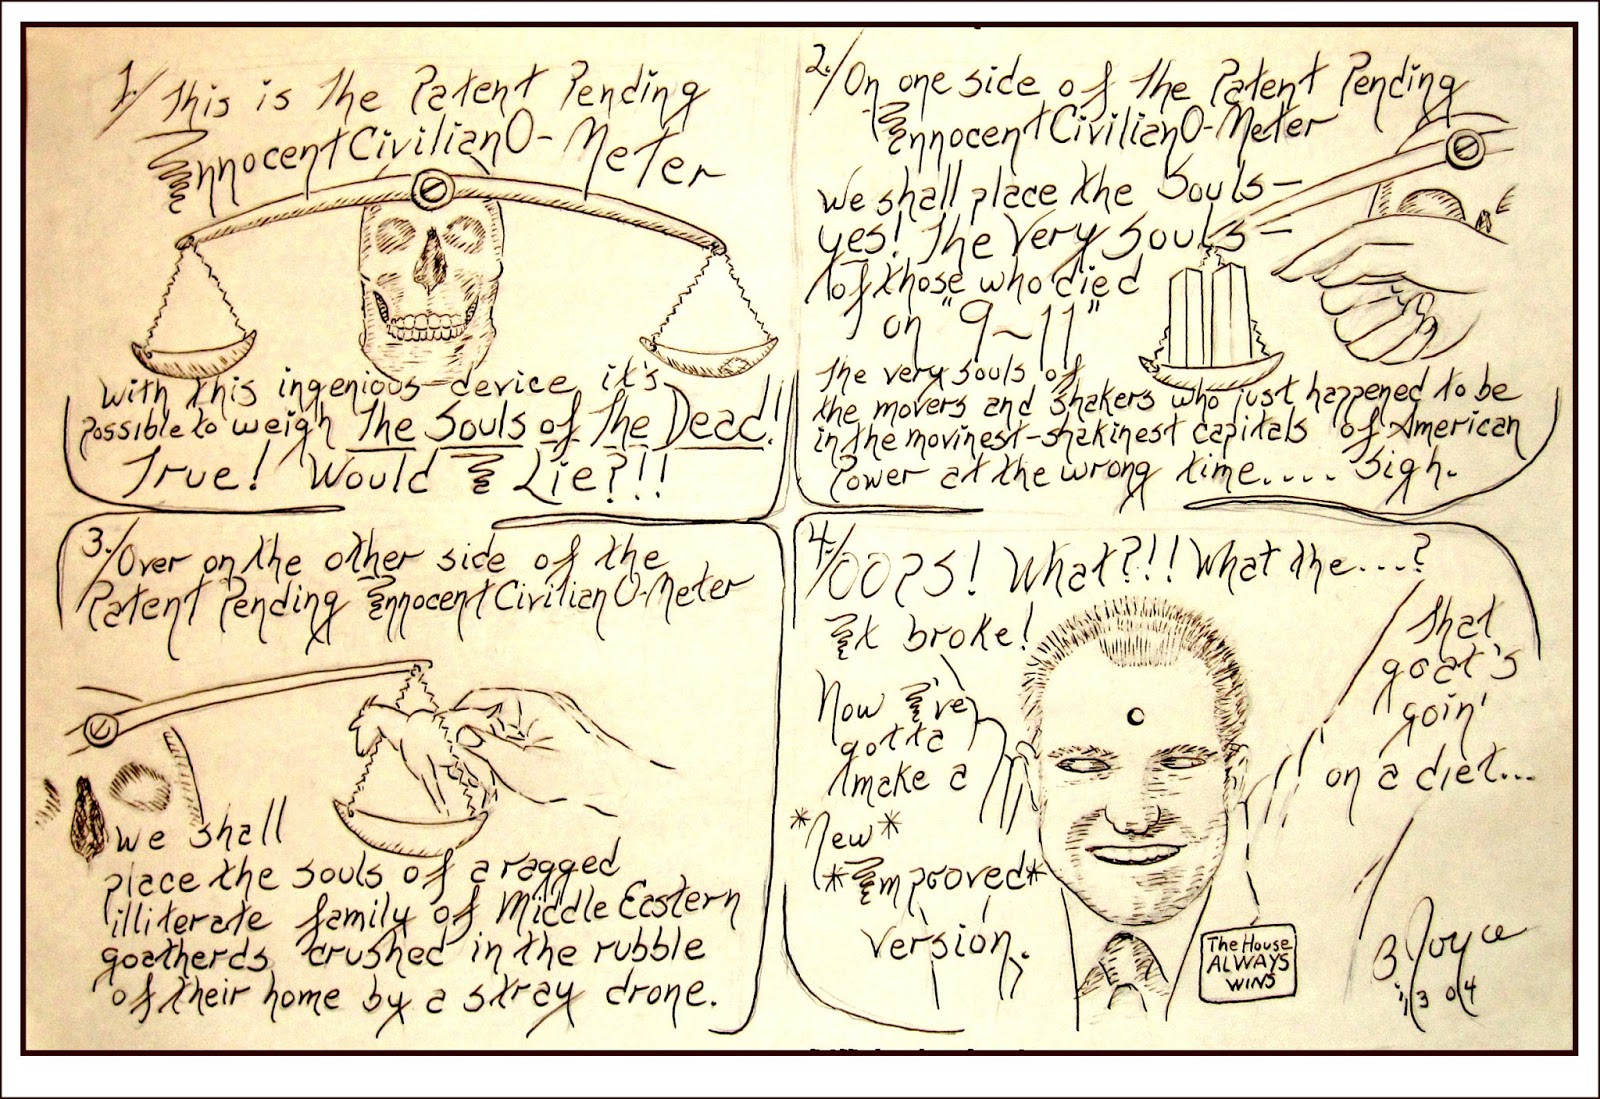 1./ This is The Patent Pending
InnocentCivilianO-Meter
With this ingenious device it's
possible to weigh The Souls of The Dead!
True! Would I Lie?!!!
2./ On one side of The Patent Pending
InnocentCivilianO-Meter
We shall place the Souls—
yes! The Very Souls—
of those who died
on "9~11"
The very souls of
the movers and shakers who just happened to be
in the movinest-shakinest capitals of American
Power at the wrong time.... sigh.
3./ Over on the other side of the
Patent Pending InnocentCivilianO-Meter
We shall
place the souls of a ragged
illiterate family of Middle Eastern
goatherds crushed in the rubble
of their home by a stray drone.
4./ OOPS! What?!!! What the....?
It broke!
Now I've
gotta
make a
*New*
*Improved*
version.
That
goat's
goin'
on a diet...
The House
ALWAYS
WINS
B. Joyce